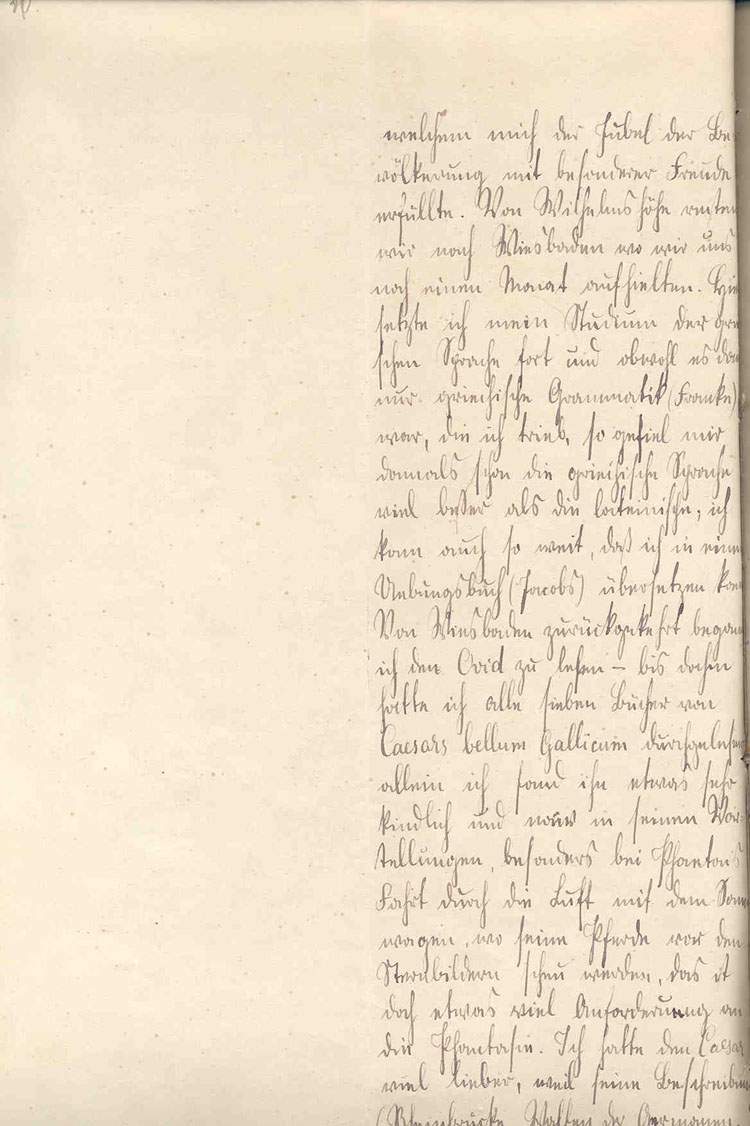 welchem mich der Jubel der Be-
völkerung mit besonderer Freude
erfüllte. Von Wilhelmshöhe reisten
wir nach Wiesbaden wo wir uns
noch einen Monat aufhielten. Hie
setzte ich mein Studium der grie
schen Sprache fort und obwohl es da
nur griechische Grammatik (Franke)
war, die ich trieb, so gefiel mir
damals schon die griechische Sprache
viel besser als die lateinische; ich
kam auch so weit, daß ich in eine
Uebungsbuch (Jacobs) übersetzen kon
Von Wiesbaden zurückgekehrt begann
ich den Ovid zu lesen – bis dahin
hatte ich alle sieben Bücher von
Caesars bellum Gallicum durchgelesen
allein ich fand ihn etwas sehr
kindlich und naiv in seinen Vor-
stellungen, besonders bei Phaetons
Fahrt durch die Luft mit dem Sonn
wagen, wo seine Pferde vor den
Sternbildern scheu werden, das ist
doch etwas viel Anforderung an
die Phantasie. Ich hatte den Caesar
viel lieber, weil seine Beschreibu
(Rheinbrücke, Waffen der Germanen,